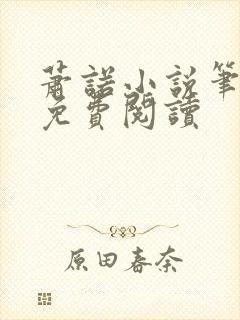 蕭諾小說筆
免費閱讀
原田春奈